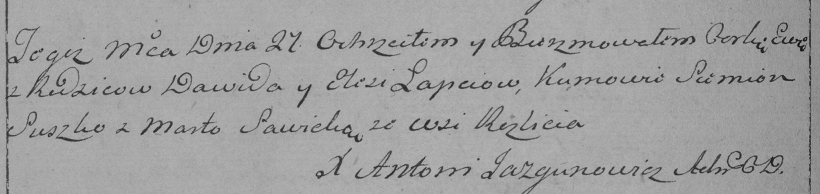 Tegiż Mca Dnia 27. Ochrzciłem y Bierzmowałem Corkę Ewę
z Rodzicow Dawida y Elesi Łapciow, Kumowie Siemion
Suszko z Marto Sawicką ze wsi Rezlicia
X Antoni Jazgunowicz